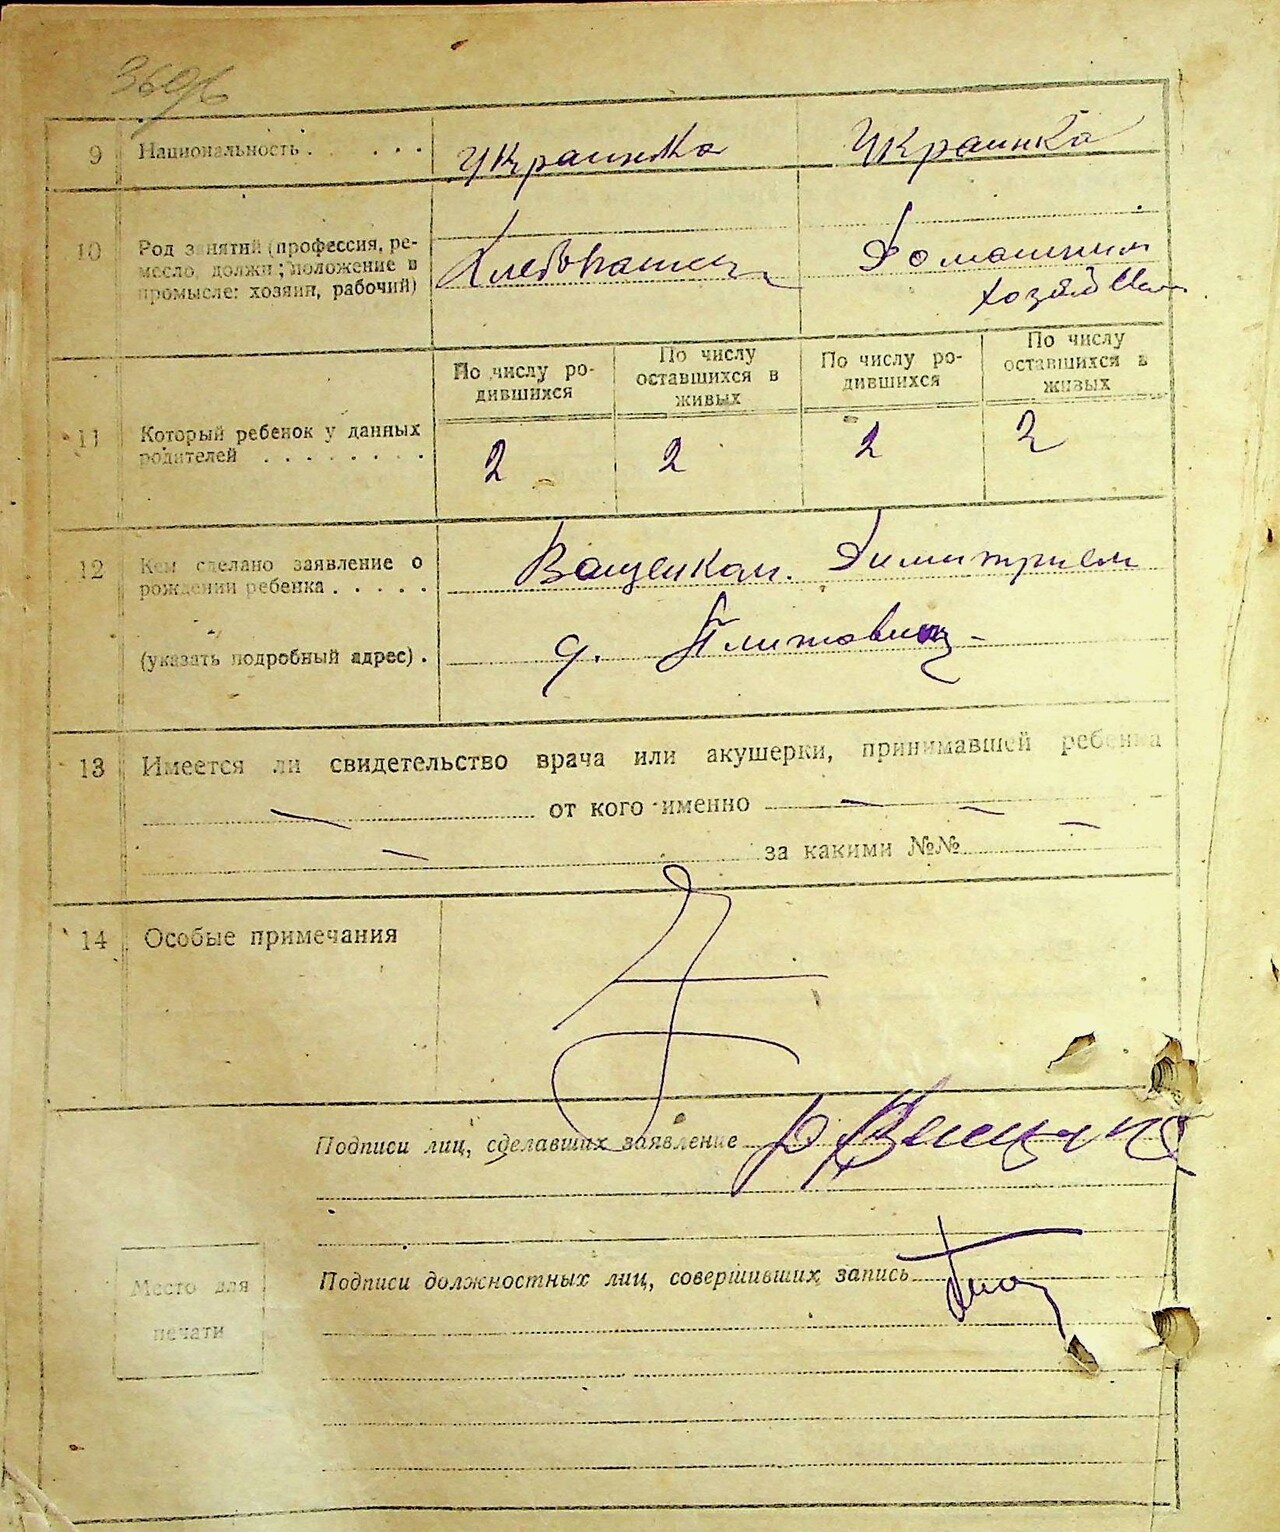 369б
9 Национальность . . . . . украинка украинка
10 Род занятий (профессия, ре-
месло, должн; положение в
промысле: хозяин, рабочий)
Хлебопашец
Домашним
хозяйством
По числу ро-
дившихся
По числу
оставшихся в
живых
По числу ро-
дившихся
По числу
оставшихся в
живых
11 Который ребенок у данных
родителей . . . . . . . .
2 2 2 2
12 Кем сделано заявление о
рождении ребенка . . . . .
Ващенком. Димитрием
(указать подробный адрес) . д.
13 Имеется ли свидетельство врача или акушерки, принимавшей ребенка
— от кого именно — — —
— за какими №№
14 Особые примечания
Подписи лиц, сделавших заявление
Подписи должностных лиц, совершивших запись
Место для
печати